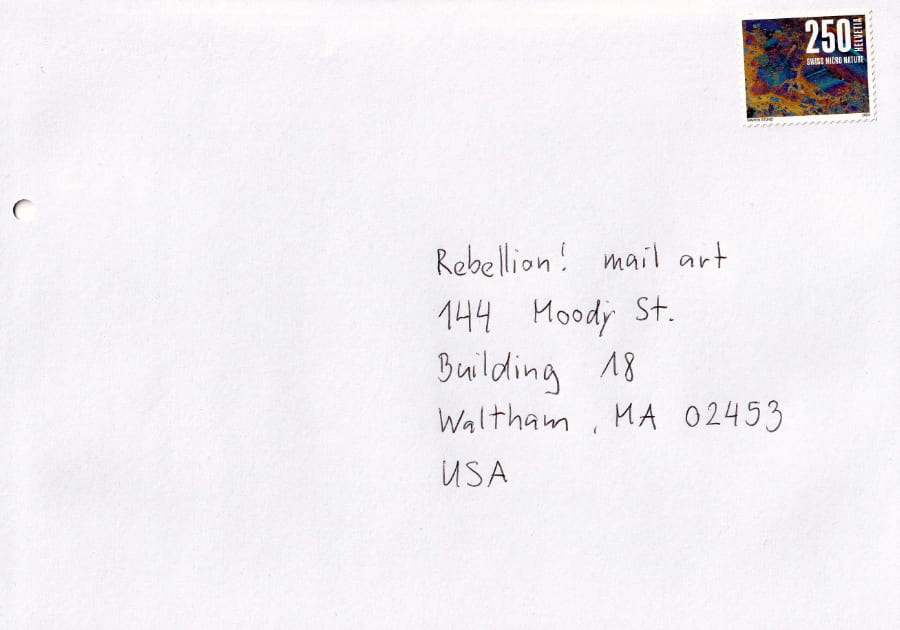 250
HELVETIA
SWISS MICRO NATURE
Rebellion! mail art
144 Moody St.
Building 18
Waltham, MA 02453
USA